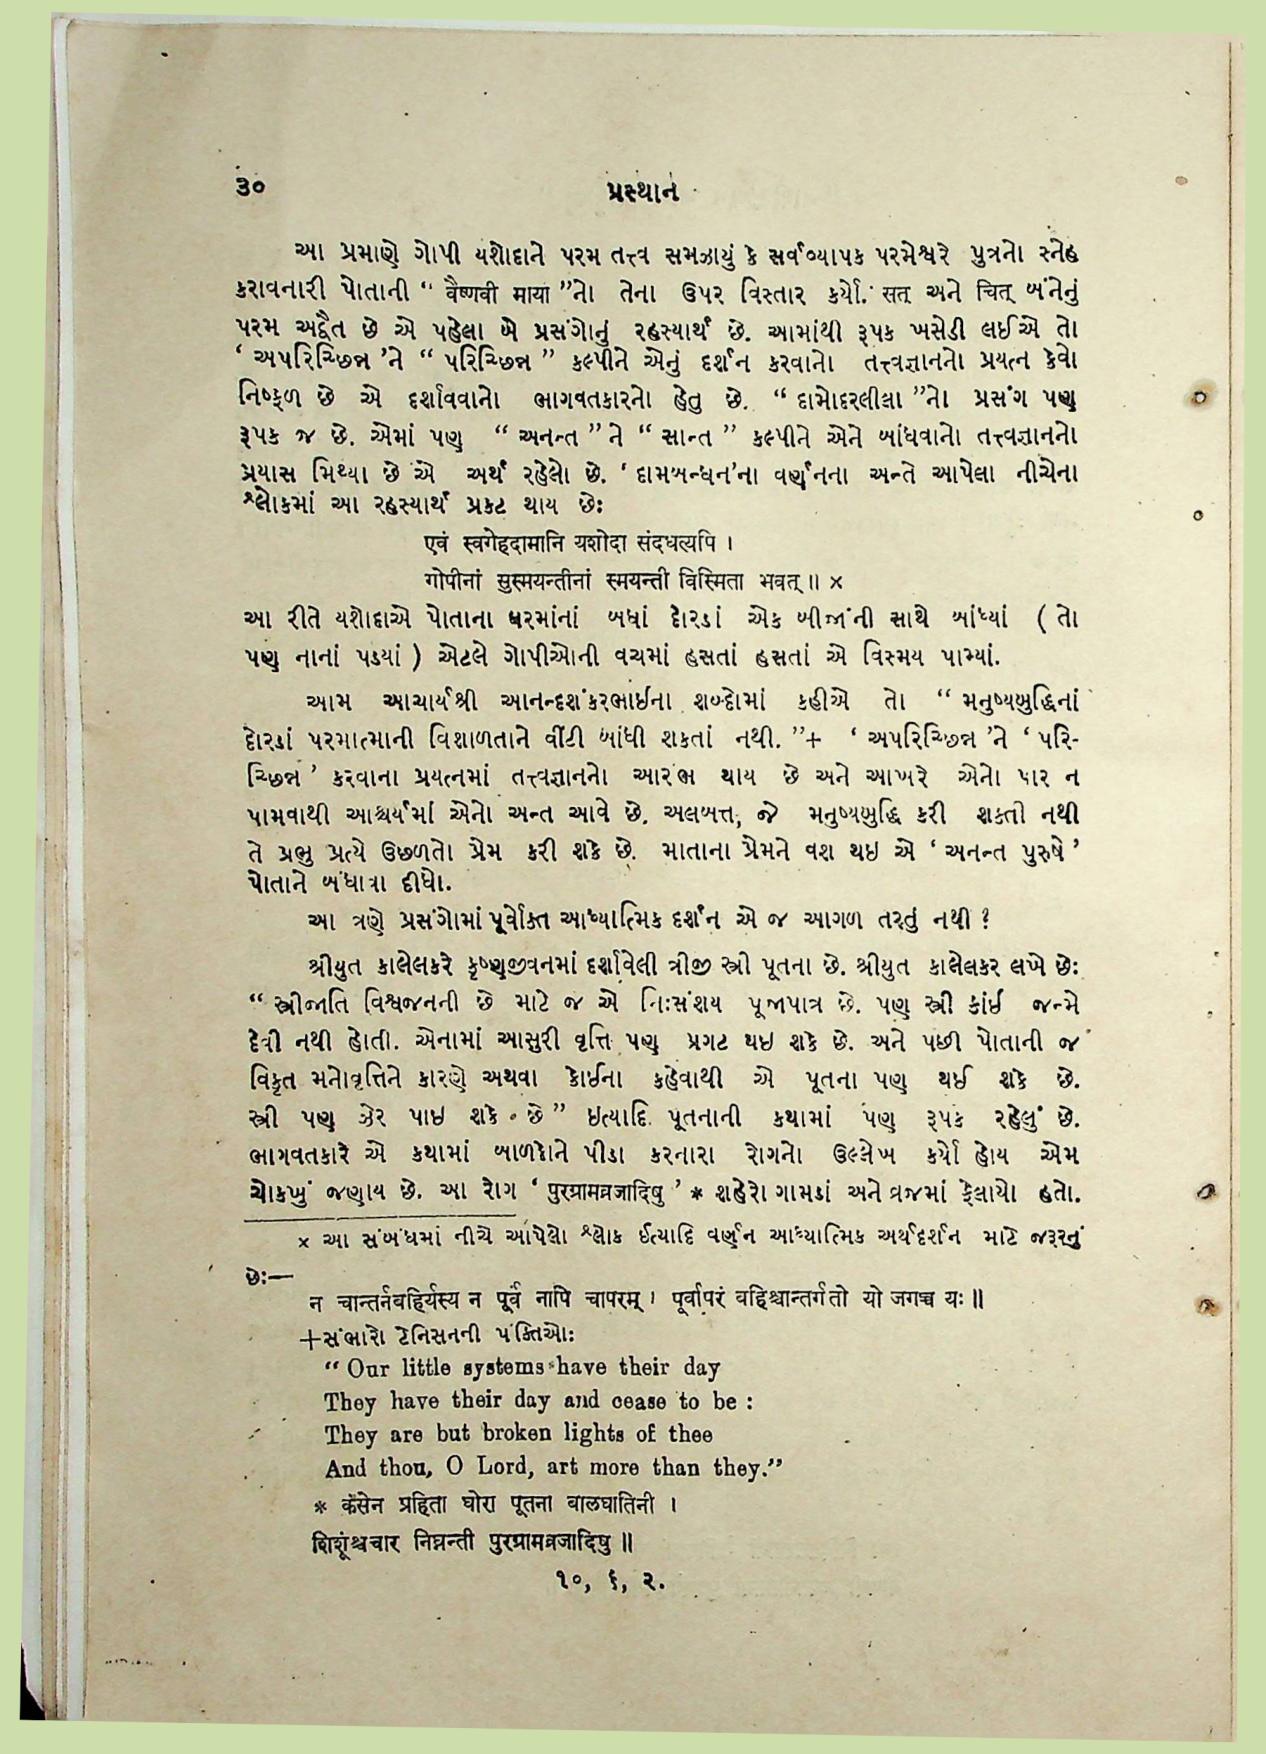 ૩૦
પ્રસ્થાન
આ પ્રમાણે ગોપી યશોદાને પરમ તત્ત્વ સમઝાયું કે સર્વવ્યાપક પરમેશ્વરે પુત્રનો સ્નેહ
કરાવનારી પોતાની “ वैष्णवी माया ”નો તેના ઉપર વિસ્તાર કર્યો. सत् અને चित् બંનેનું
પરમ અદ્વૈત છે એ પહેલા બે પ્રસંગોનું રહસ્યાર્થ છે. આમાંથી રૂપક ખસેડી લઈએ તો
‘ અપરિચ્છિન્ન ’ને “ પરિચ્છિન્ન ” કલ્પીને એનું દર્શન કરવાનો તત્ત્વજ્ઞાનનો પ્રયત્ન કેવો
નિષ્ફળ છે એ દર્શાવવાનો ભાગવતકારનો હેતુ છે. “ દામોદરલીલા ”નો પ્રસંગ પણ
રૂપક જ છે. એમાં પણ “ અનન્ત ”ને “ સાન્ત ” કલ્પીને એને બાંધવાનો તત્ત્વજ્ઞાનનો
પ્રયાસ મિથ્યા છે એ અર્થ રહેલો છે. ‘ દામબન્ધન’ના વર્ણનના અન્તે આપેલા નીચેના
શ્લોકમાં આ રહસ્યાર્થ પ્રકટ થાય છે:
एवं स्वगेहदामानि यशोदा संदधत्यपि ।
गोपीनां सुस्मयन्तीनां स्मयन्ती विस्मिता भवत् ॥ ×
આ રીતે યશોદાએ પોતાના ઘરમાંનાં બધાં દોરડાં એક બીજાંની સાથે બાંધ્યાં ( તો
પણ નાનાં પડયાં ) એટલે ગોપીઓની વચમાં હસતાં હસતાં એ વિસ્મય પામ્યાં.
આમ આચાર્યશ્રી આનન્દશંકરભાઇના શબ્દોમાં કહીએ તો “ મનુષ્યબુદ્ધિનાં
દોરડાં પરમાત્માની વિશાળતાને વીંટી બાંધી શકતાં નથી. ”+ ‘ અપરિચ્છિન્ન ’ને ‘ પરિ-
ચ્છિન્ન ’ કરવાના પ્રયત્નમાં તત્ત્વજ્ઞાનનો આરંભ થાય છે અને આખરે એનો પાર ન
પામવાથી આશ્ચર્યમાં એનો અન્ત આવે છે. અલબત્ત, જે મનુષ્યબુદ્ધિ કરી શકતી નથી
તે પ્રભુ પ્રત્યે ઉછળતો પ્રેમ કરી શકે છે. માતાના પ્રેમને વશ થઇ એ ‘ અનન્ત પુરુષે ’
પોતાને બંધાવા દીધો.
આ ત્રણે પ્રસંગોમાં પૂર્વોક્ત આધ્યાત્મિક દર્શન એ જ આગળ તરતું નથી ?
શ્રીયુત કાલેલકરે કૃષ્ણજીવનમાં દર્શાવેલી ત્રીજી સ્ત્રી પૂતના છે. શ્રીયુત કાલેલકર લખે છે:
“ સ્ત્રીજાતિ વિશ્વજનની છે માટે જ એ નિ:સંશય પૂજાપાત્ર છે. પણ સ્ત્રી કાંઈ જન્મે
દેવી નથી હોતી. એનામાં આસુરી વૃત્તિ પણ પ્રગટ થઇ શકે છે. અને પછી પોતાની જ
વિકૃત મનોવૃત્તિને કારણે અથવા કોઈના કહેવાથી એ પૂતના પણ થઈ શકે છે.
સ્ત્રી પણ ઝેર પાઇ શકે છે ” ઇત્યાદિ પૂતનાની કથામાં પણ રૂપક રહેલું છે.
ભાગવતકારે એ કથામાં બાળકોને પીડા કરનારા રોગનો ઉલ્લેખ કર્યો હોય એમ
ચોકખું જણાય છે. આ રોગ ‘ पुरग्रामव्रजादिषु ’ * શહેરો ગામડાં અને વ્રજમાં ફેલાયો હતો.
× આ સંબંધમાં નીચે આપેલો શ્લોક ઈત્યાદિ વર્ણન આધ્યાત્મિક અર્થદર્શન માટે જરૂરનું
છે:—
न चान्तर्नबहिर्यस्य न पूर्वं नापि चापरम् । पूर्वापरं बहिश्चान्तर्गतो यो जगच्च यः ॥
+સંભારો ટેનિસનની પંક્તિઓ:
“ Our little systems have their day
They have their day and cease to be :
They are but broken lights of thee
And thou, O Lord, art more than they.”
* कंसेन प्रहिता घोरा पूतना बालघातिनी ।
शिशूंश्चचार निघ्नन्ती पुरग्रामव्रजादिषु ॥
૧૦, ૬, ૨.